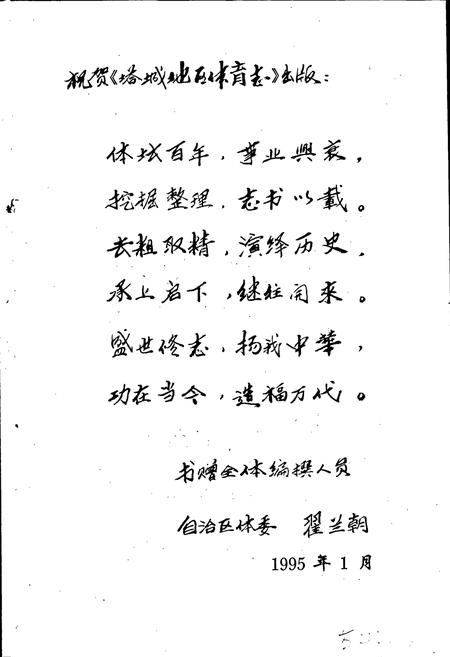 祝贺《塔城地区体育志》出版：
体坛百年，事业興衰，
挖掘整理，志书以載。
去粗取精，演绎历史，
承上启下，继往开来。
盛世修志，扬我中華，
功在当今，造福万代。
书赠全体编撰人员
自治区体委 翟兰朝
1995 年 1 月